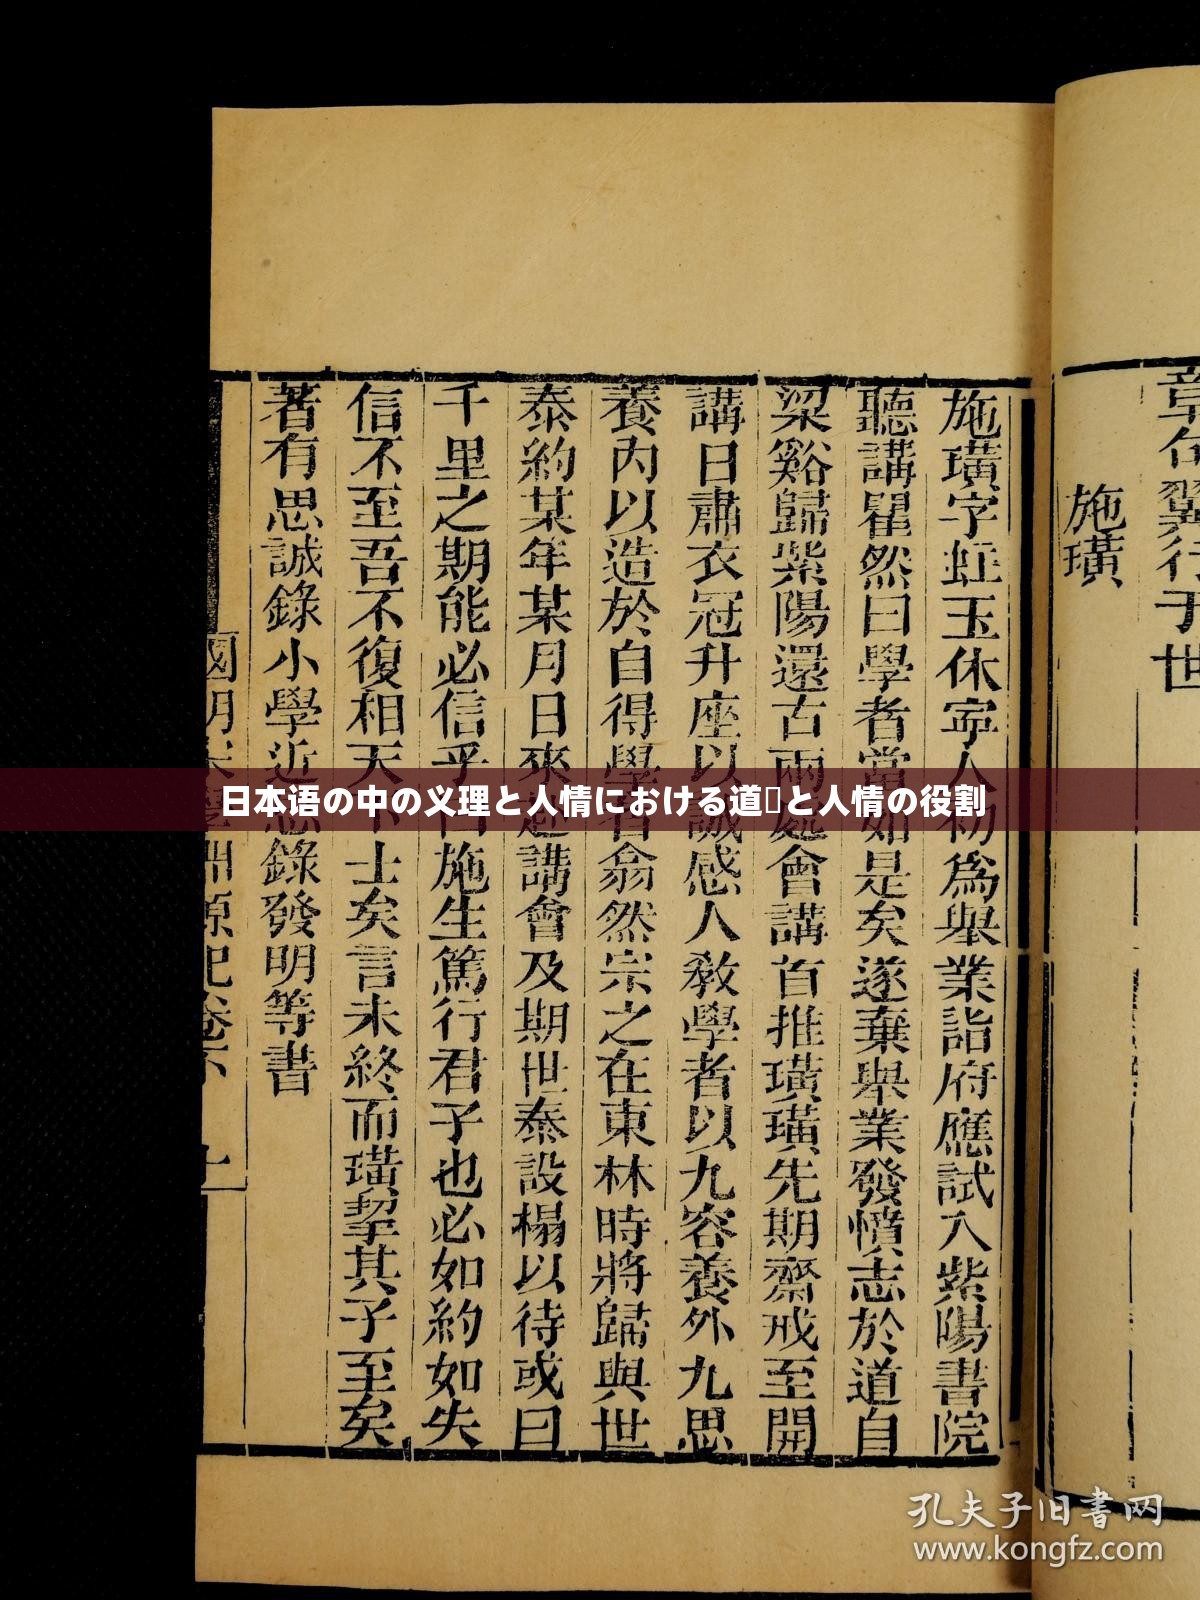 章缶翼行于世
施璜
施璜字虹玉休寧人初爲舉業詣府應試入紫陽書院
聽講瞿然曰學者當如是矣遂棄舉業發憤志於道自
梁谿歸紫陽還古兩處會講首推璜璜先期齋戒至開
講日肅衣冠升座以誠感人敎學者以九容養外九思
養內以造於自得學者翕然宗之在東林時將歸與世
泰約某年某月日來赴講會及期世泰設榻以待或曰
千里之期能必信乎曰施生篤行君子也必如約如失
信不至吾不復相天下士矣言未終而璜挈其子至矣
著有思誠錄小學近思錄發明等書
國朝宋學淵源記卷下
日本语の中の义理と人情における道と人情の役割
孔夫子旧书网
www.kongfz.com